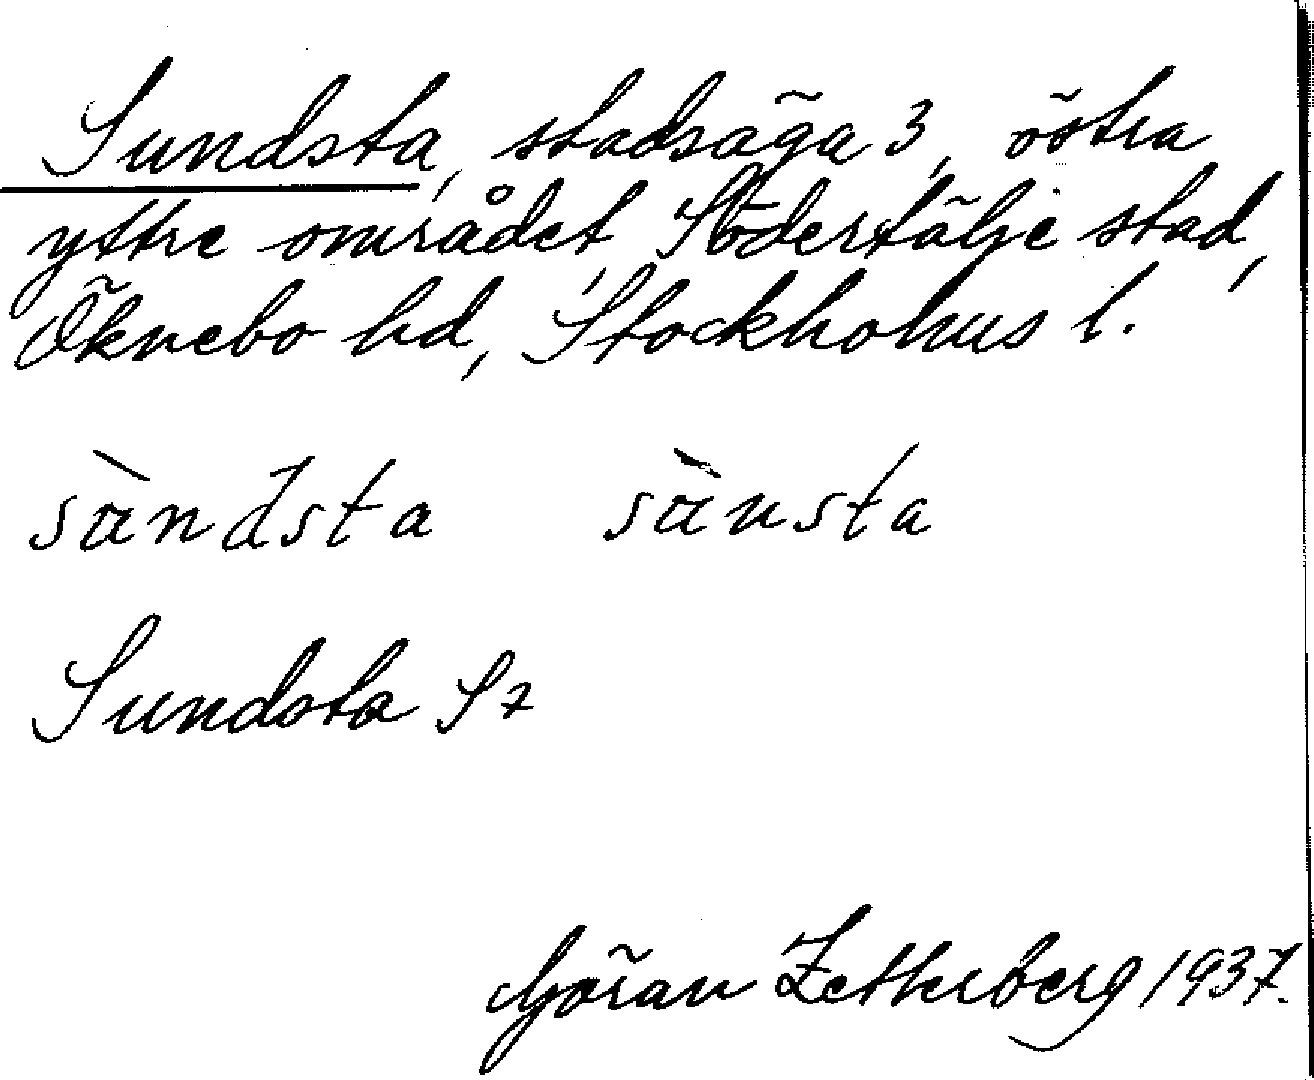 Sundsta, stadsäga 3, östra
yttre området, Södertälje stad,
Öknebo hd, Stockholms l.
sàndsta sànsta
Sundsta Sz
Göran Zetterberg 1937.